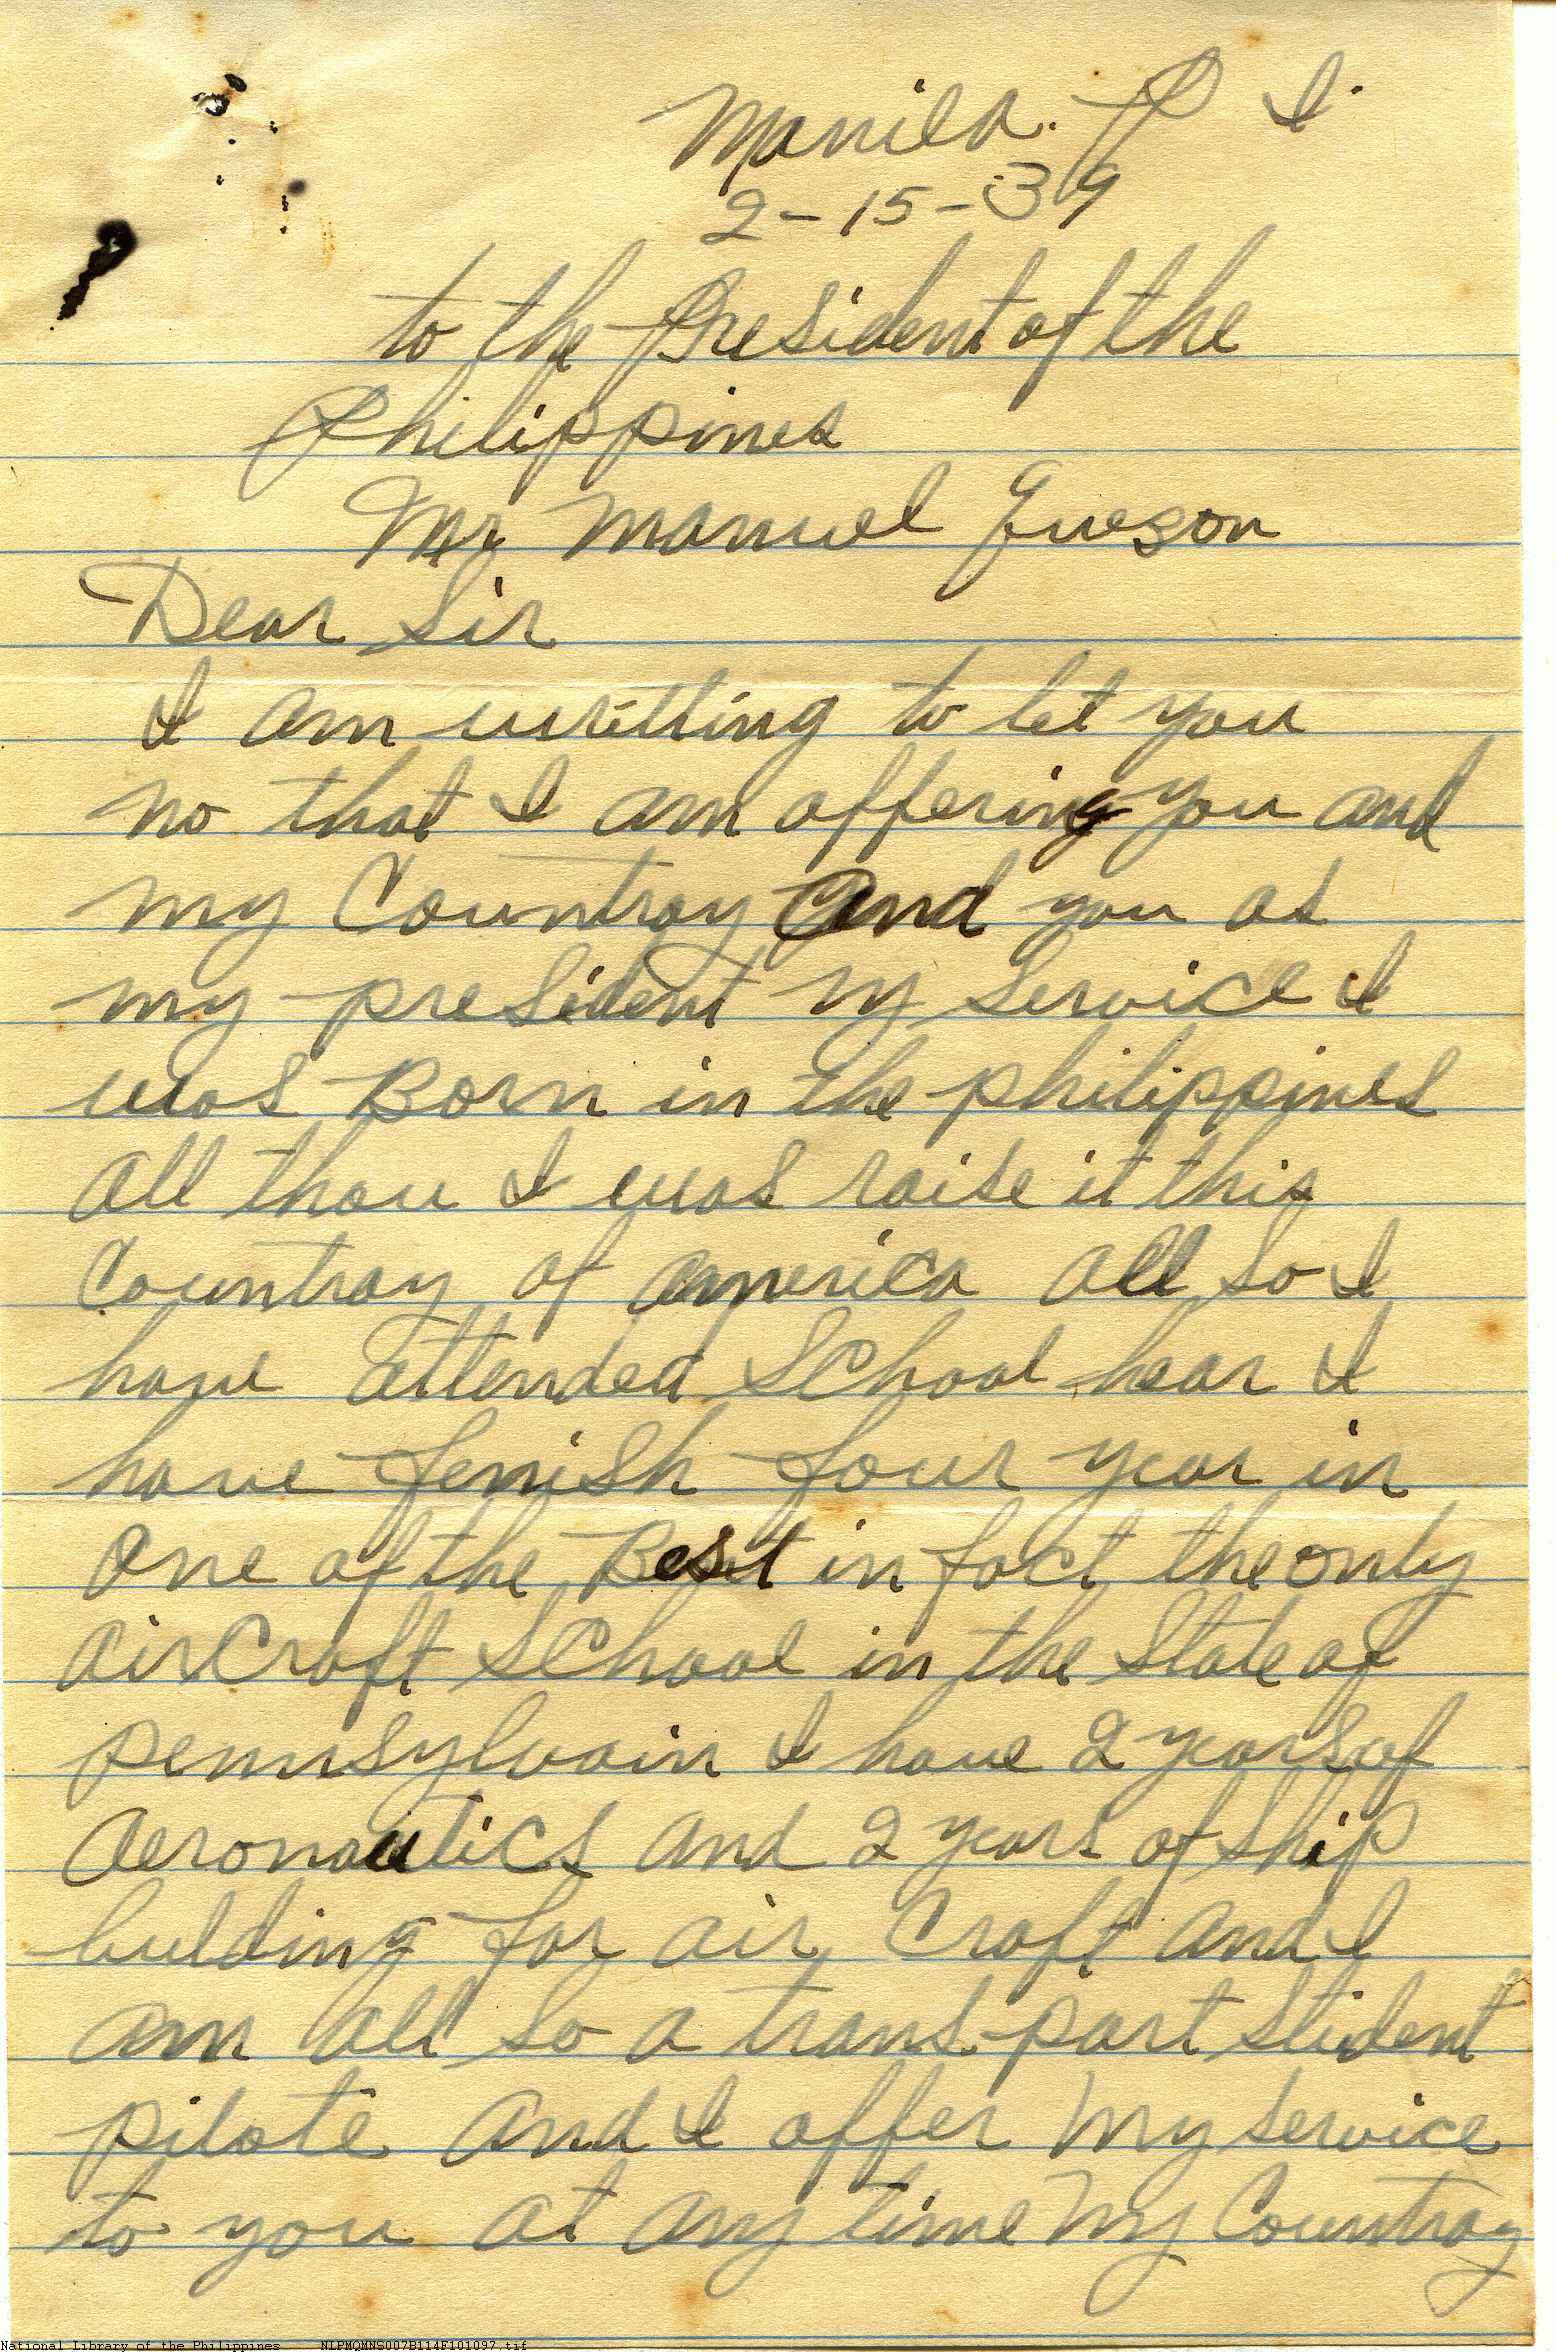 Manila. P I.
2-15-39
to the President of the
Philippines
Mr Manuel Queson
Dear Sir
I am writting to let you
no that I am offering you and
my Countray and you as
my president my service I
was Born in the philippines
all thou I was raise it this
Countray of america all so I
have attended School hear I
have fenish four year in
one of the Best in fact the only
airCraft School in the State of
pennsylvain I have 2 years of
aeronautics and 2 years of ship
bulding for air Craft and I
am all so a trans-part student
pilote and I offer my service
to you at any time my Countray
National Library of the Philippines NLPMQMNS007B114F101097.tif